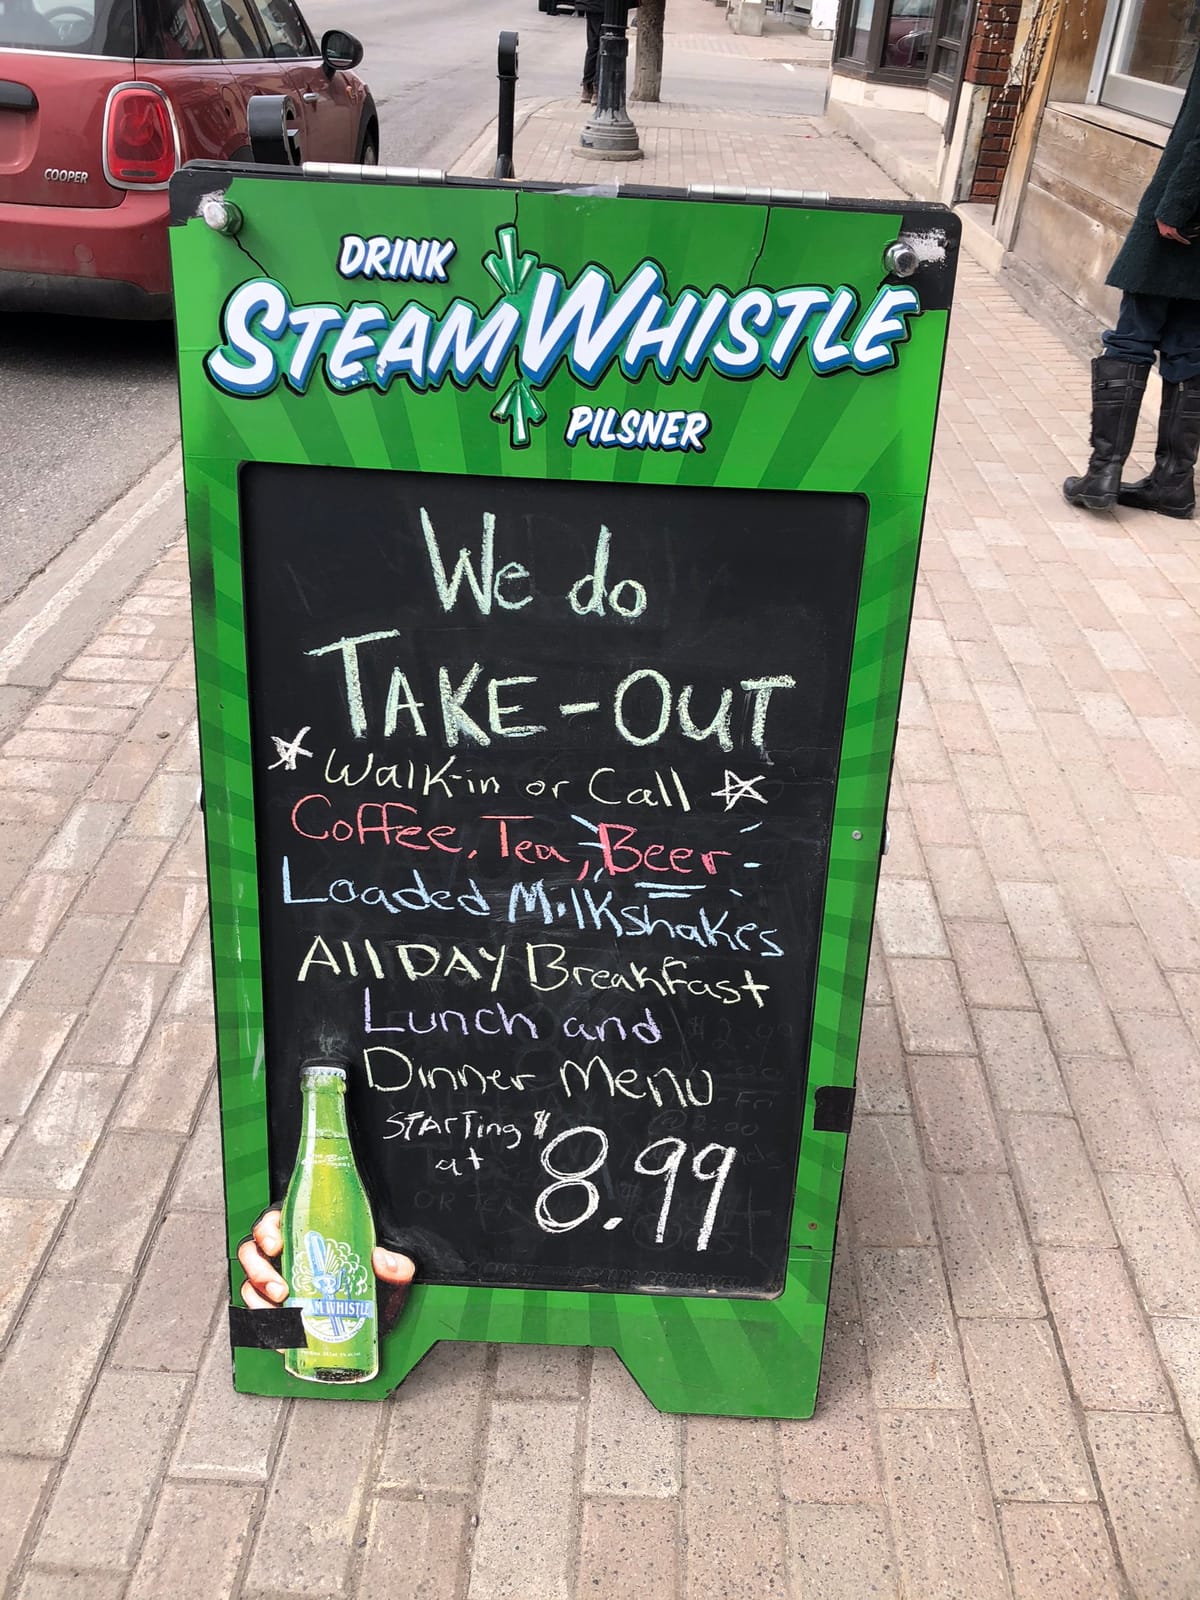 COOPER
DRINK
STEAMWHISTLE
PILSNER
We do
TAKE-OUT
Walk-in or Call
Coffee, Tea, Beer
Loaded Milkshakes
All DAY Breakfast
Lunch and
Dinner Menu
STArTing
at $8.99
AM WHISTLE